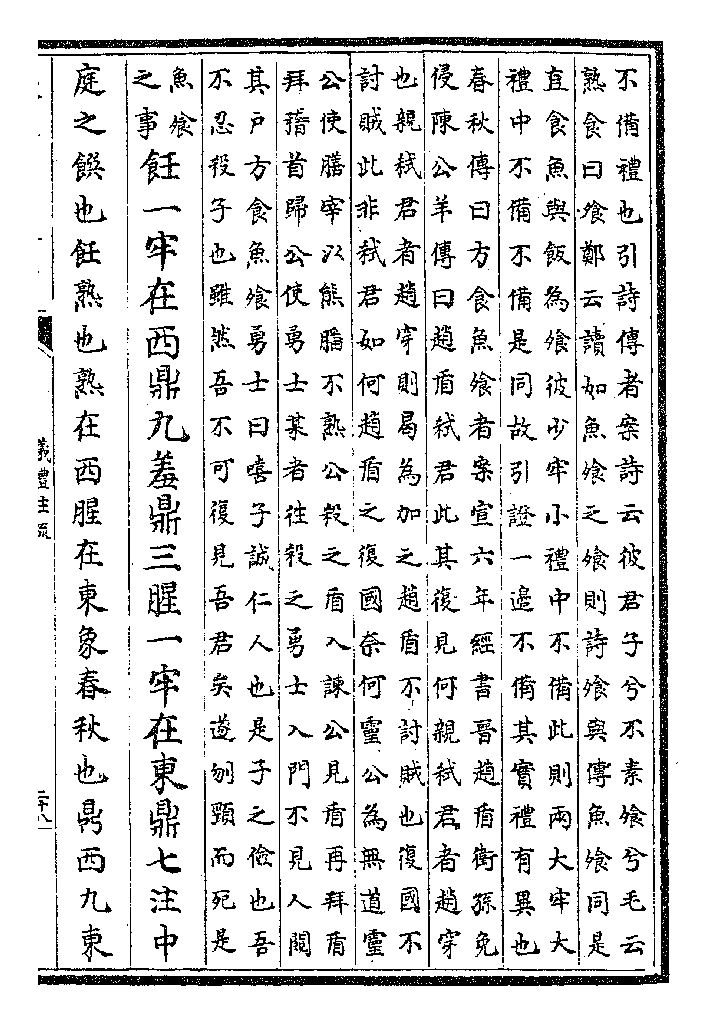 不備禮也引詩傳者案詩云彼君子兮不素飧兮毛云
熟食曰飧鄭云讀如魚飧之飧則詩飧與傳魚飧同是
直食魚與飯為飧彼少牢小禮中不備此則兩大牢大
禮中不備不備是同故引證一邊不備其實禮有異也
春秋傳曰方食魚飧者案宣六年經書晉趙盾衛孫免
侵陳公羊傳曰趙盾弑君此其復見何親弑君者趙穿
也親弑君者趙穿則曷為加之趙盾不討賊也復國不
討賊此非弑君如何趙盾之復國奈何靈公為無道靈
公使膳宰以熊膰不熟公殺之盾入諫公見盾再拜盾
拜稽首歸公使勇士某者往殺之勇士入門不見人閱
其戶方食魚飧勇士曰嘻子誠仁人也是子之儉也吾
不忍殺子也雖然吾不可復見吾君矣遂刎頸而死是
魚飧
之事
飪一牢在西鼎九羞鼎三腥一牢在東鼎七注中
庭之饌也飪熟也熟在西腥在東象春秋也鼎西九東
儀禮注疏
二十八